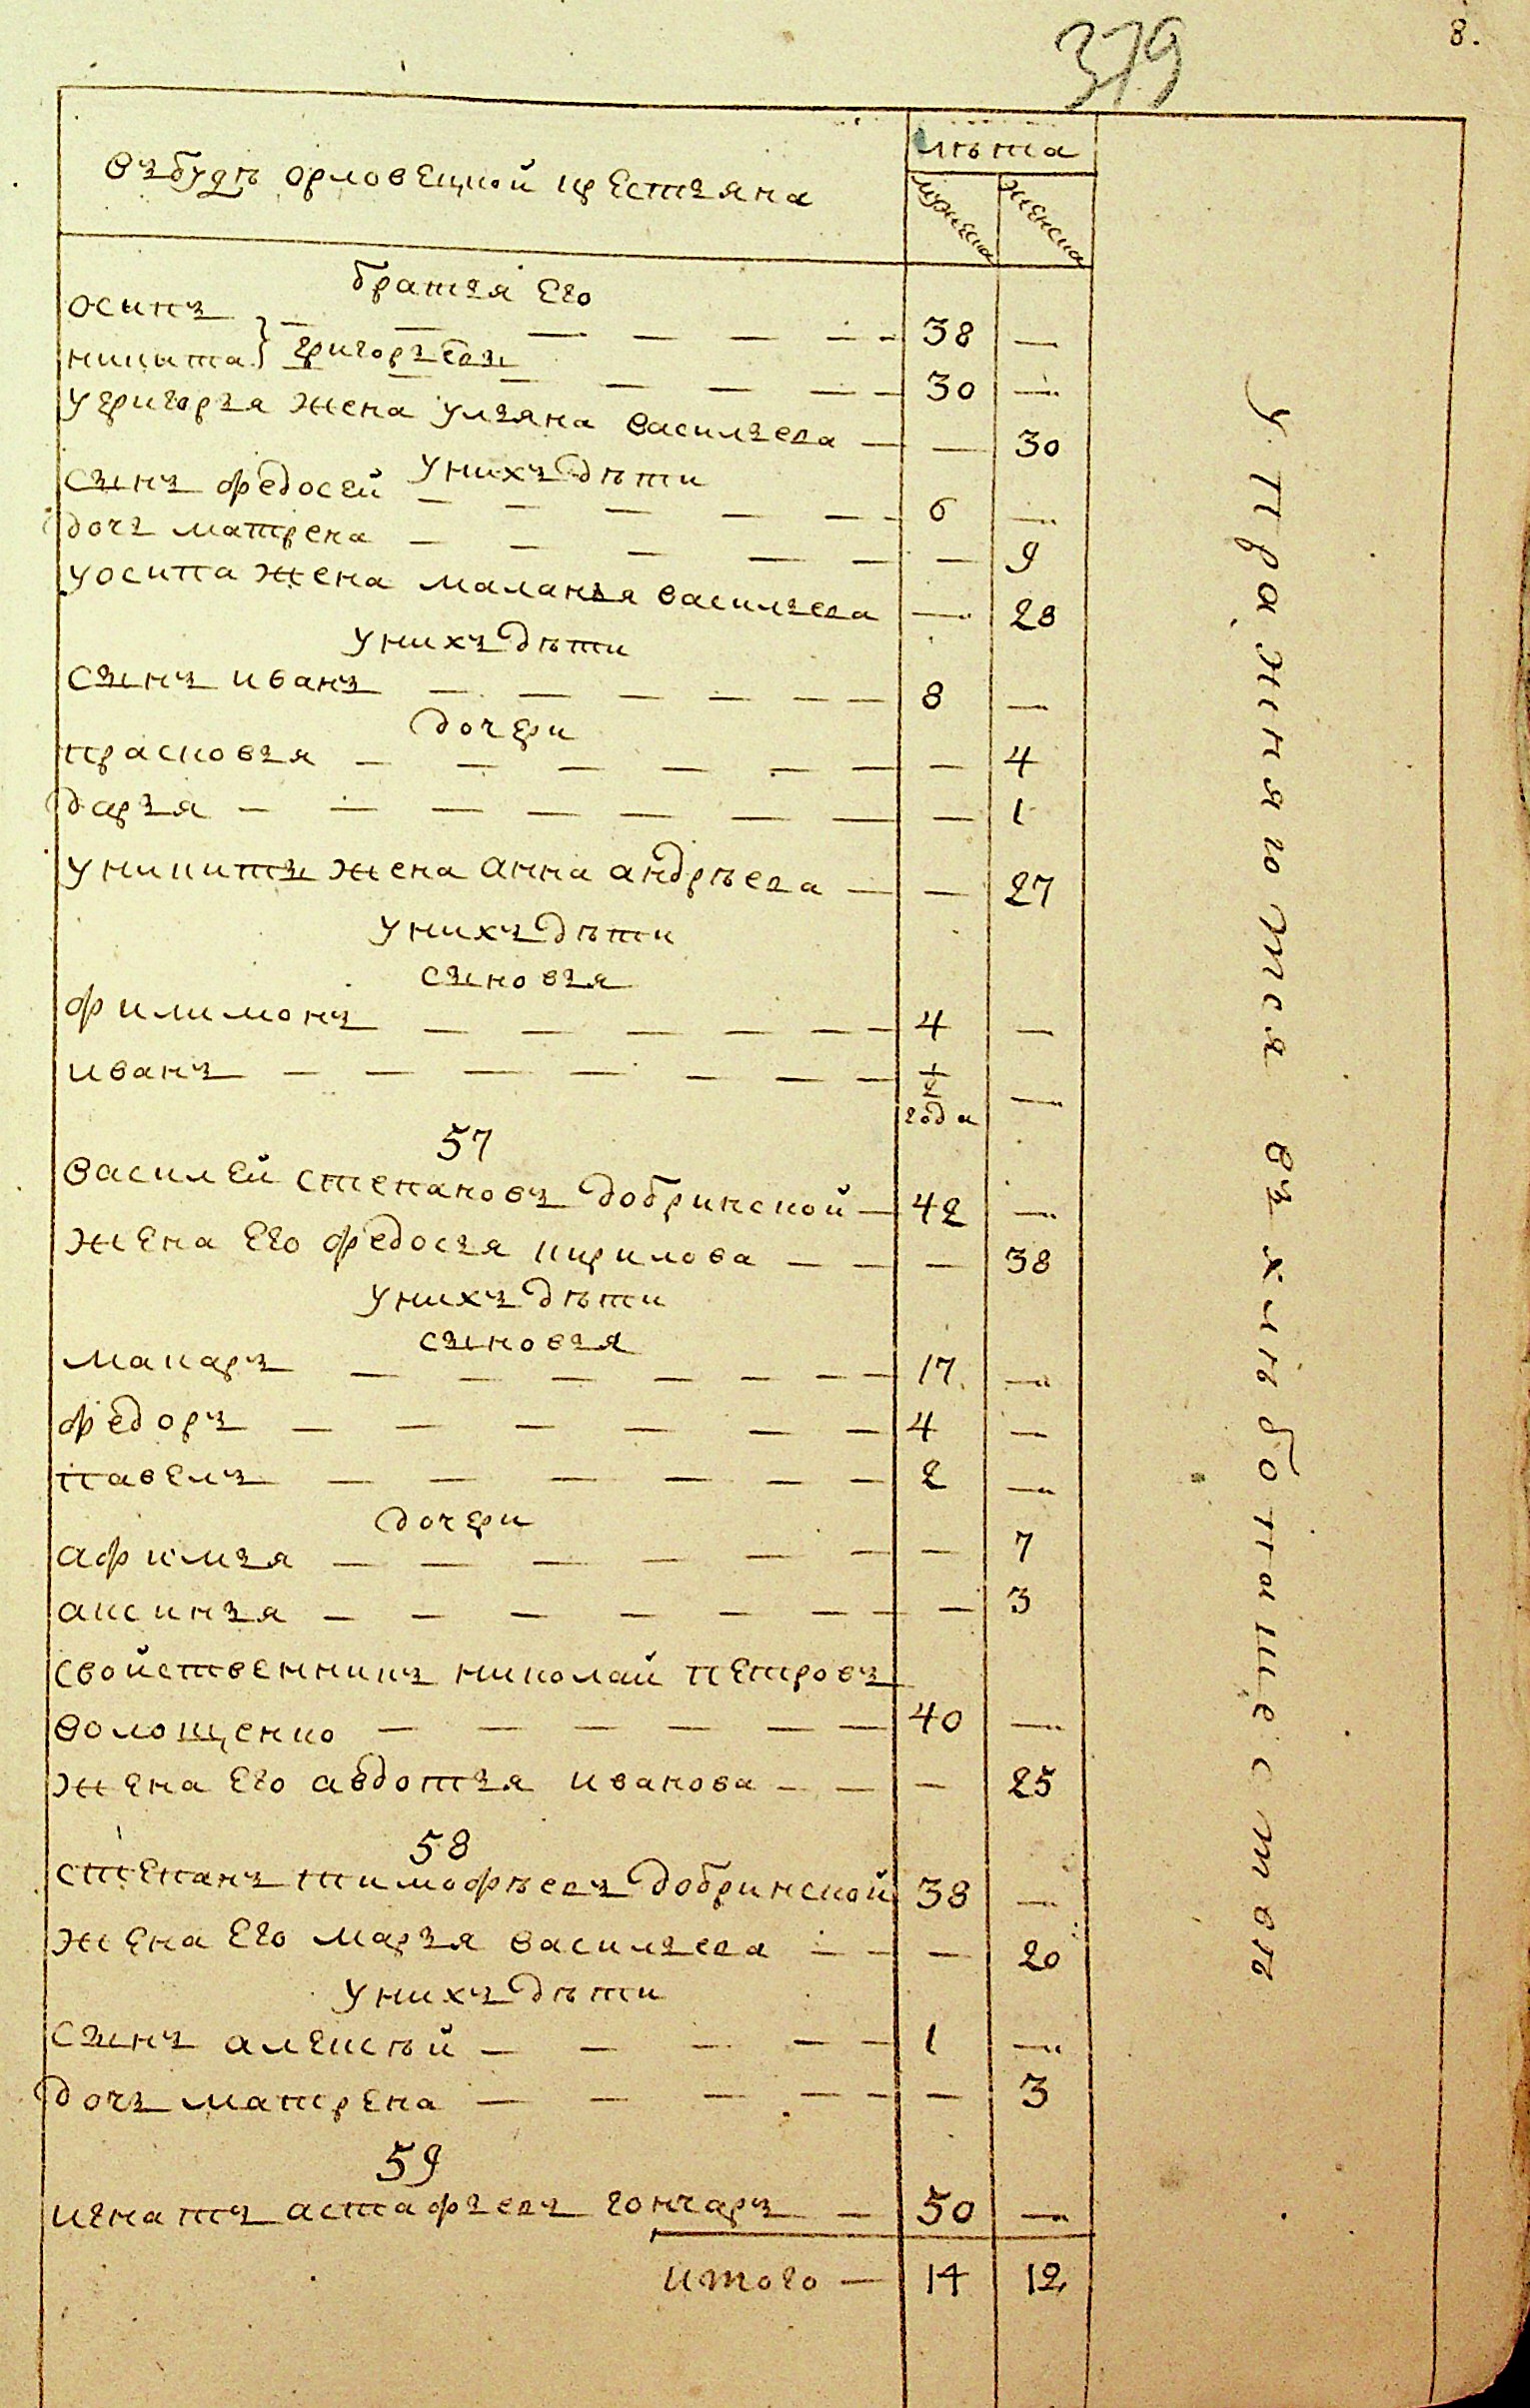 379
8.
въ будѣ орловецкой крестьяна
лѣта
мужеска
женска
братья Его
осипъ — 38 —
никита } григорьевы — 30 —
у григорья жена ульяна васильева — — 30
у нихъ дѣти
сынъ федосей — 6 —
дочь матрена — — 9
у осипа жена маланья васильева — 28
у нихъ дѣти
сынъ иванъ — 8 —
дочери
прасковья — — 4
дарья — — 1
у никиты жена анна андрѣева — — 27
у нихъ дѣти
сыновья
филимонъ — 4 —
иванъ — 1/2 года —
57
василей степановъ добринской — 42 —
жена Его федосья кирилова — — 38
у нихъ дѣти
сыновья
макаръ — 17 —
федоръ — 4 —
павелъ — 2 —
дочери
афимья — — 7
аксинья — — 3
свойственникъ николай петровъ
волощенко — 40 —
жена Его авдотья иванова — — 25
58
степанъ тимофѣевъ добринской 38 —
жена Его марья васильева — — 20
у нихъ дѣти
сынъ алексѣй — 1 —
дочь матрена — — 3
59
игнатъ астафьевъ гончаръ — 50 —
итого — 14 12
упражняются въ хлѣбопашествѣ